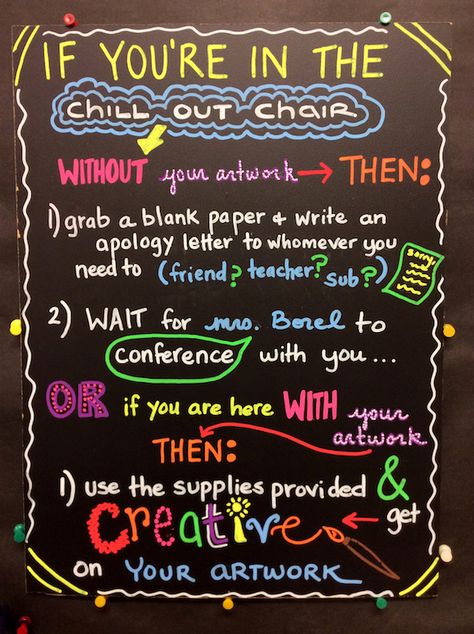 IF YOU'RE IN THE
CHILL OUT CHAIR
WITHOUT your artwork → THEN:
1) grab a blank paper + write an
apology letter to whomever you
need to (friend? teacher? sub?)
sorry
2) WAIT for mrs. Borel to
conference with you...
OR if you are here WITH your
artwork
THEN:
1) use the supplies provided &
Creative ← get
on YOUR ARTWORK